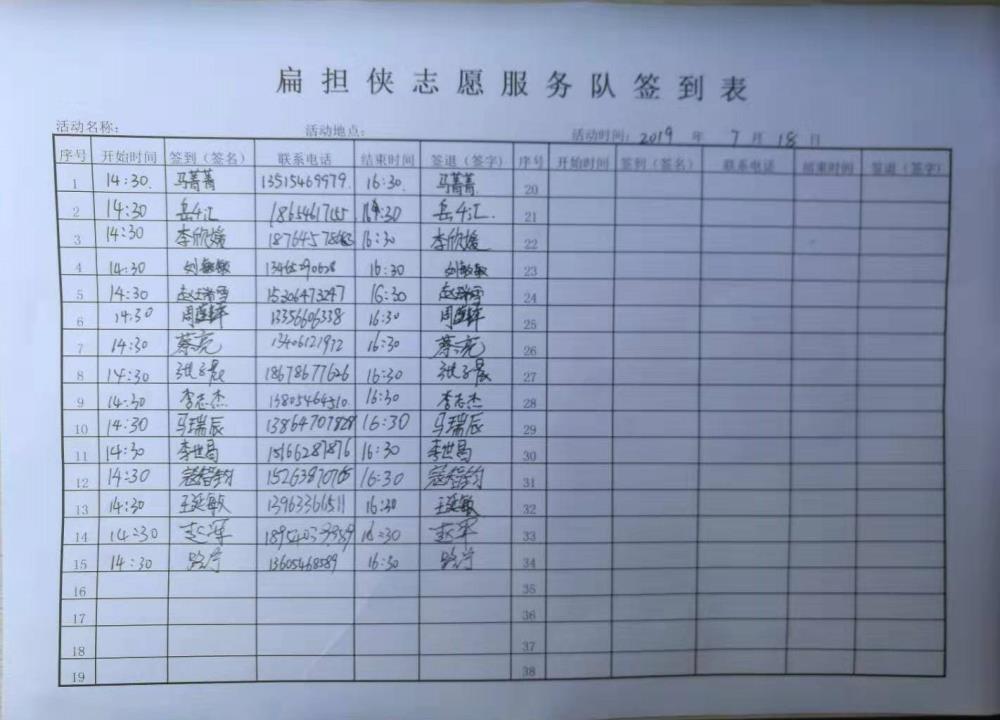 扁担侠志愿服务队签到表
活动名称： 活动地点： 活动时间：2019 年 7 月 18 日
序号 开始时间 签到（签名） 联系电话 结束时间 签退（签字） 序号 开始时间 签到（签名） 联系电话 结束时间 签退（签字）
1 14:30. 马菁菁 13515469979. 16:30. 马菁菁. 20
2 14:30 18654617155 岳 21
3 14:30 李欣媛 16:30 李欣媛 22
4 14:30 刘敏敏 13465290628 16:30 刘敏敏 23
5 14:30 赵瑞雪 15306473247 16:30 赵瑞雪 24
6 14:30 周莲萍 13356606338 16:30 周莲萍 25
7 14:30 蔡亮 13406121972 16:30 蔡亮 26
8 14:30 张子晨 18678677626 16:30 张子晨 27
9 14:30 李志杰 13805464510 16:30 李志杰 28
10 14:30 马瑞辰 13864707828 16:30 马瑞辰 29
11 14:30 李世昌 15166287876 16:30 李世昌 30
12 14:30 寇智钧 16:30 寇智钧 31
13 14:30 王延敏 13963366511 16:30 王延敏 32
14 14:30 赵军 16:30 赵军 33
15 14:30 路宁 13605468589 16:30 路宁 34
16 35
17 36
18 37
19 38